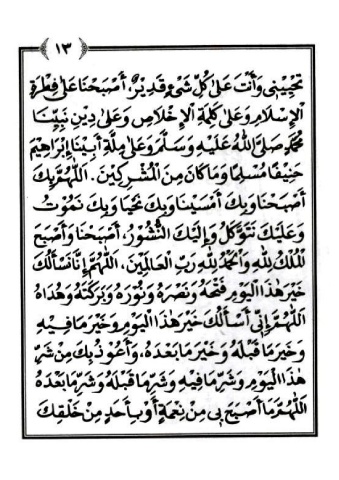 ١٣
تُحْيِيْنِي وَأَنْتَ عَلَى كُلِّ شَيْءٍ قَدِيْرٌ، أَصْبَحْنَا عَلَى فِطْرَةِ
الْإِسْلَامِ وَعَلَى كَلِمَةِ الْإِخْلَاصِ وَعَلَى دِيْنِ نَبِيِّنَا
مُحَمَّدٍ صَلَّى اللّٰهُ عَلَيْهِ وَسَلَّمَ وَعَلَى مِلَّةِ أَبِيْنَا إِبْرَاهِيْمَ
حَنِيْفًا مُسْلِمًا وَمَا كَانَ مِنَ الْمُشْرِكِيْنَ. اَللّٰهُمَّ بِكَ
أَصْبَحْنَا وَبِكَ أَمْسَيْنَا وَبِكَ نَحْيَا وَبِكَ نَمُوْتُ
وَعَلَيْكَ نَتَوَكَّلُ وَإِلَيْكَ النُّشُوْرُ. أَصْبَحْنَا وَأَصْبَحَ
الْمُلْكُ لِلّٰهِ وَالْحَمْدُ لِلّٰهِ رَبِّ الْعَالَمِيْنَ، اَللّٰهُمَّ إِنَّا نَسْأَلُكَ
خَيْرَ هٰذَا الْيَوْمِ فَتْحَهُ وَنَصْرَهُ وَنُوْرَهُ وَبَرَكَتَهُ وَهُدَاهُ
اَللّٰهُمَّ إِنِّي أَسْأَلُكَ خَيْرَ هٰذَا الْيَوْمِ وَخَيْرَ مَا فِيْهِ
وَخَيْرَ مَا قَبْلَهُ وَخَيْرَ مَا بَعْدَهُ، وَأَعُوْذُ بِكَ مِنْ شَرِّ
هٰذَا الْيَوْمِ وَشَرِّ مَا فِيْهِ وَشَرِّ مَا قَبْلَهُ وَشَرِّ مَا بَعْدَهُ
اَللّٰهُمَّ مَا أَصْبَحَ بِي مِنْ نِعْمَةٍ أَوْ بِأَحَدٍ مِنْ خَلْقِكَ